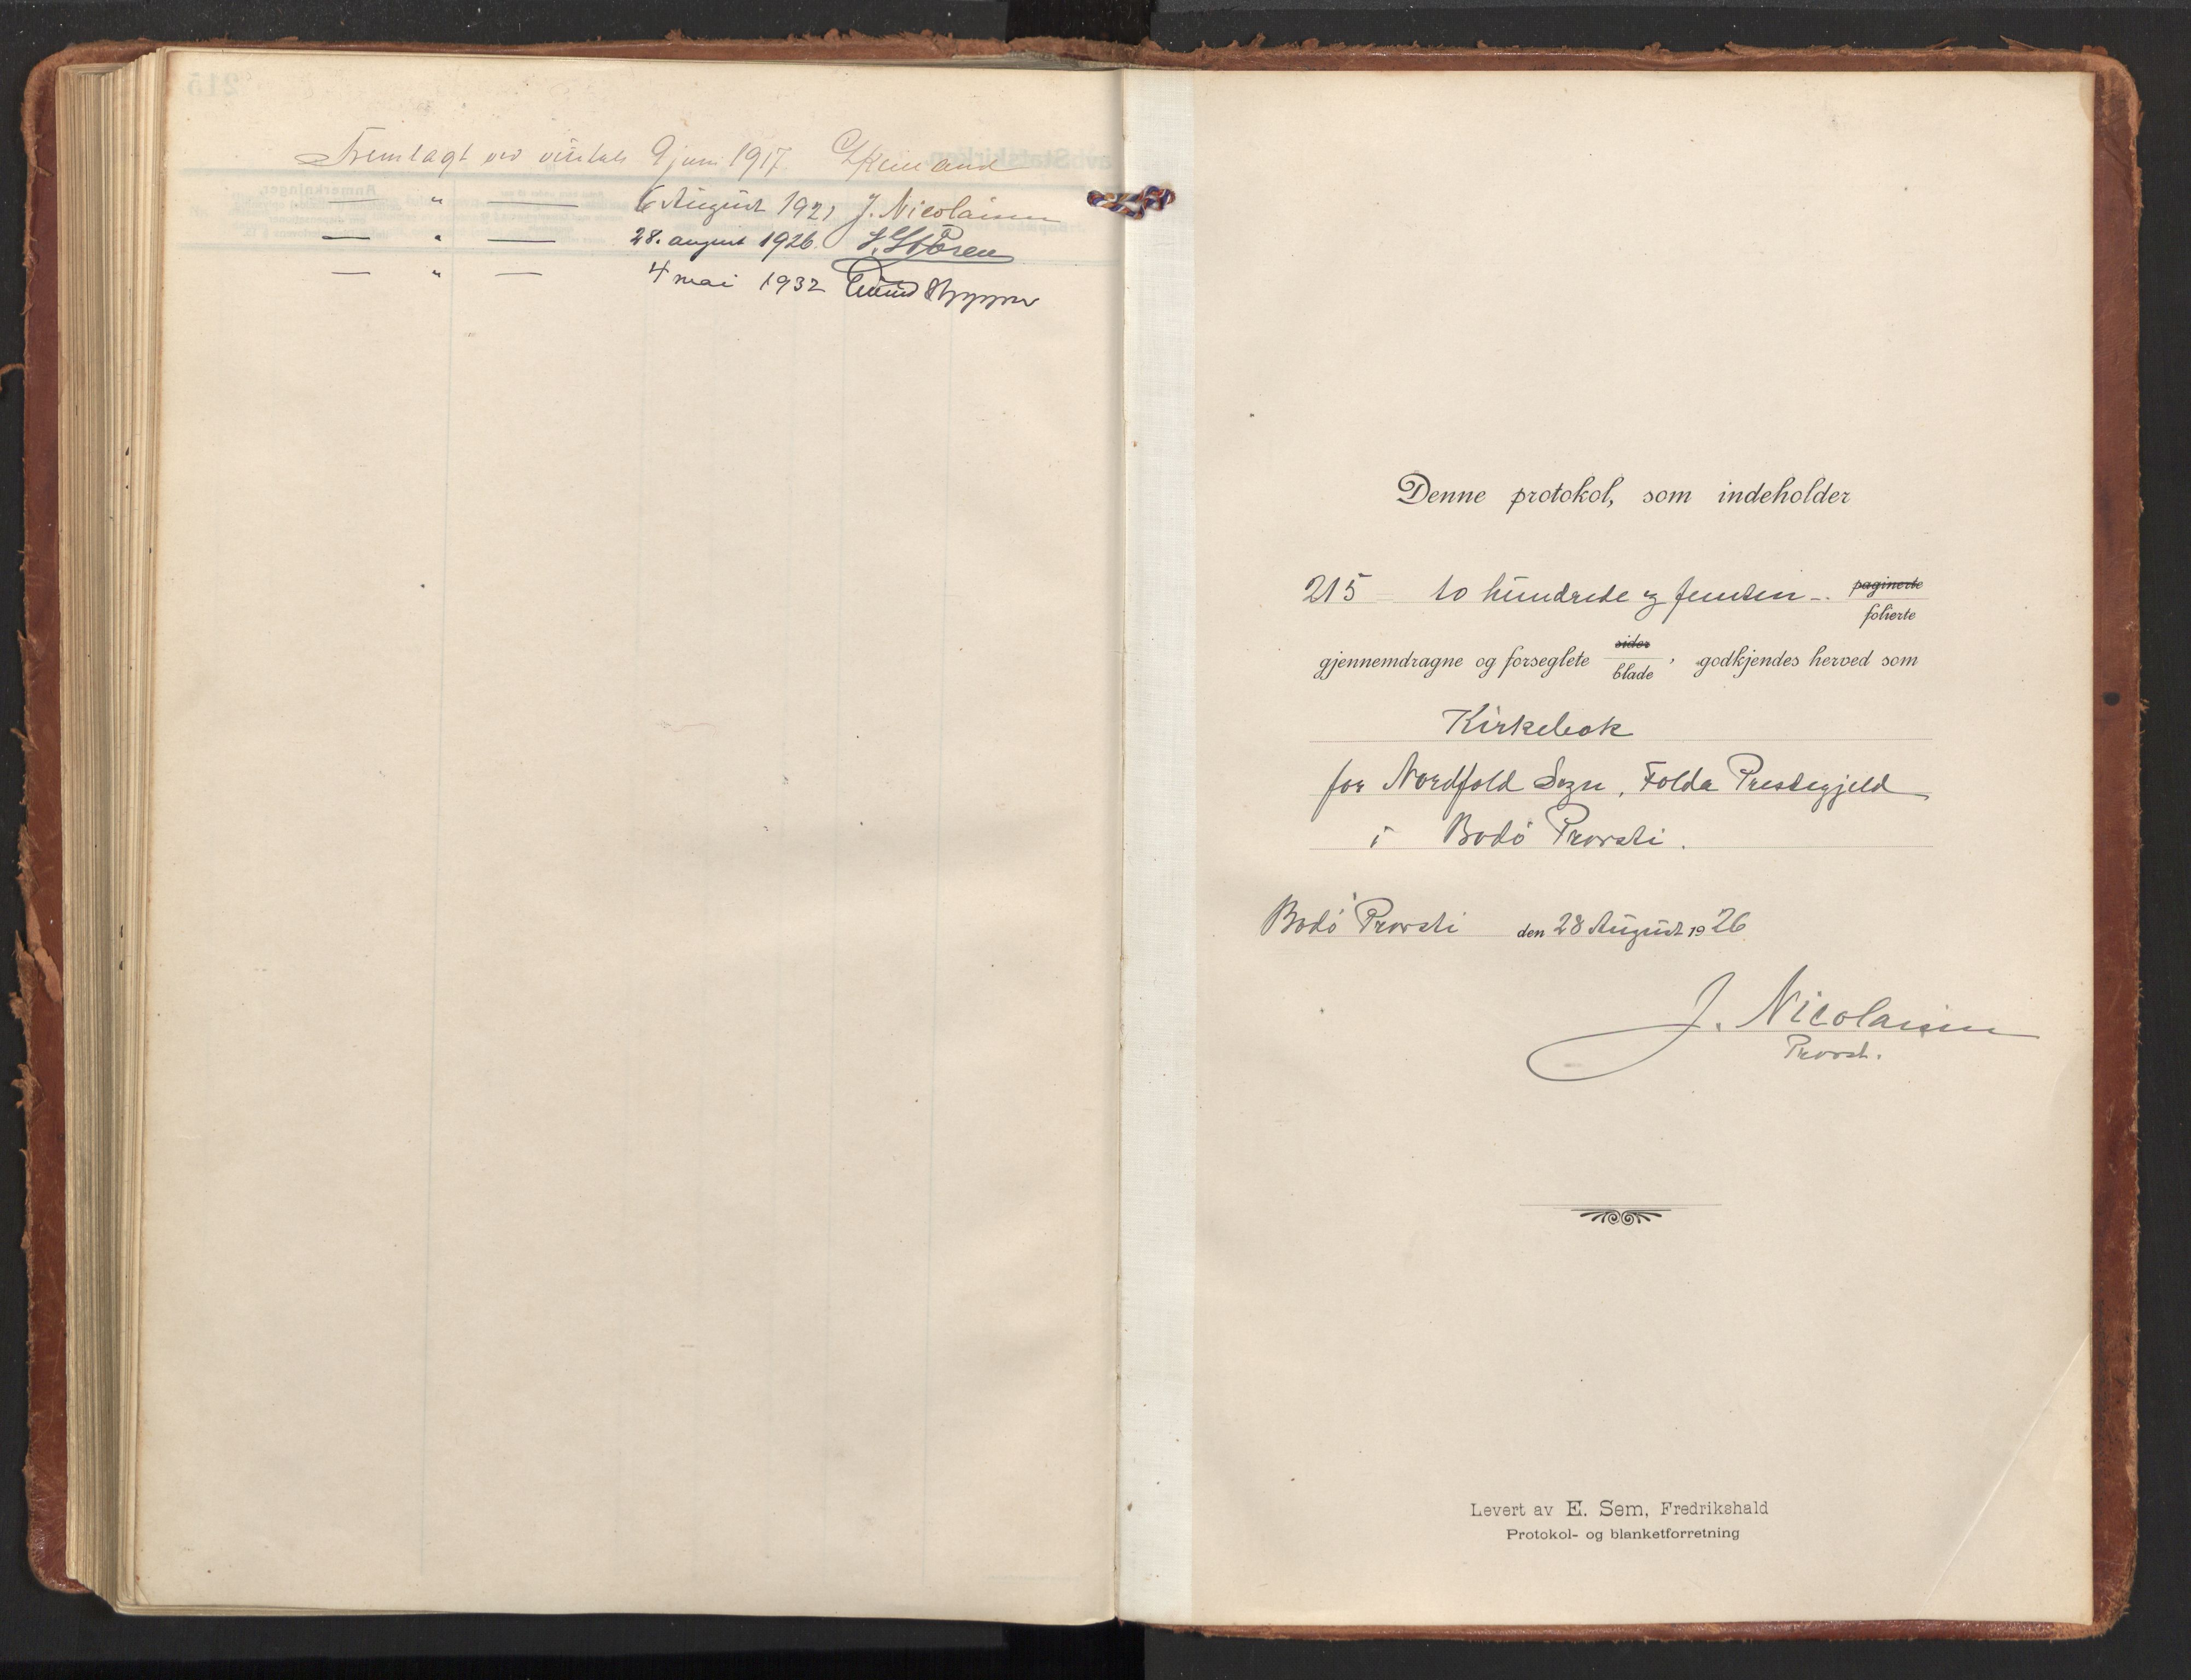 Fremlagt ved visitats 9 juni 1917
— " — 6 August 1921 J. Nicolaisen
— " — 28. august 1926. S. Støren
— " — 4 mai 1932 Eivind Berggrav
Denne protokol, som indeholder
215 to hundrede og femten -. paginerte
folierte
gjennemdragne og forseglete sider
blade, godkjendes herved som
Kirkebok
for Nordfold Sogn, Folda Prestegjeld
i Bodø Provsti.
Bodø Provsti den 28 August 1926
J. Nicolaisen
Provst.
Levert av E. Sem, Fredrikshald
Protokol- og blanketforretning